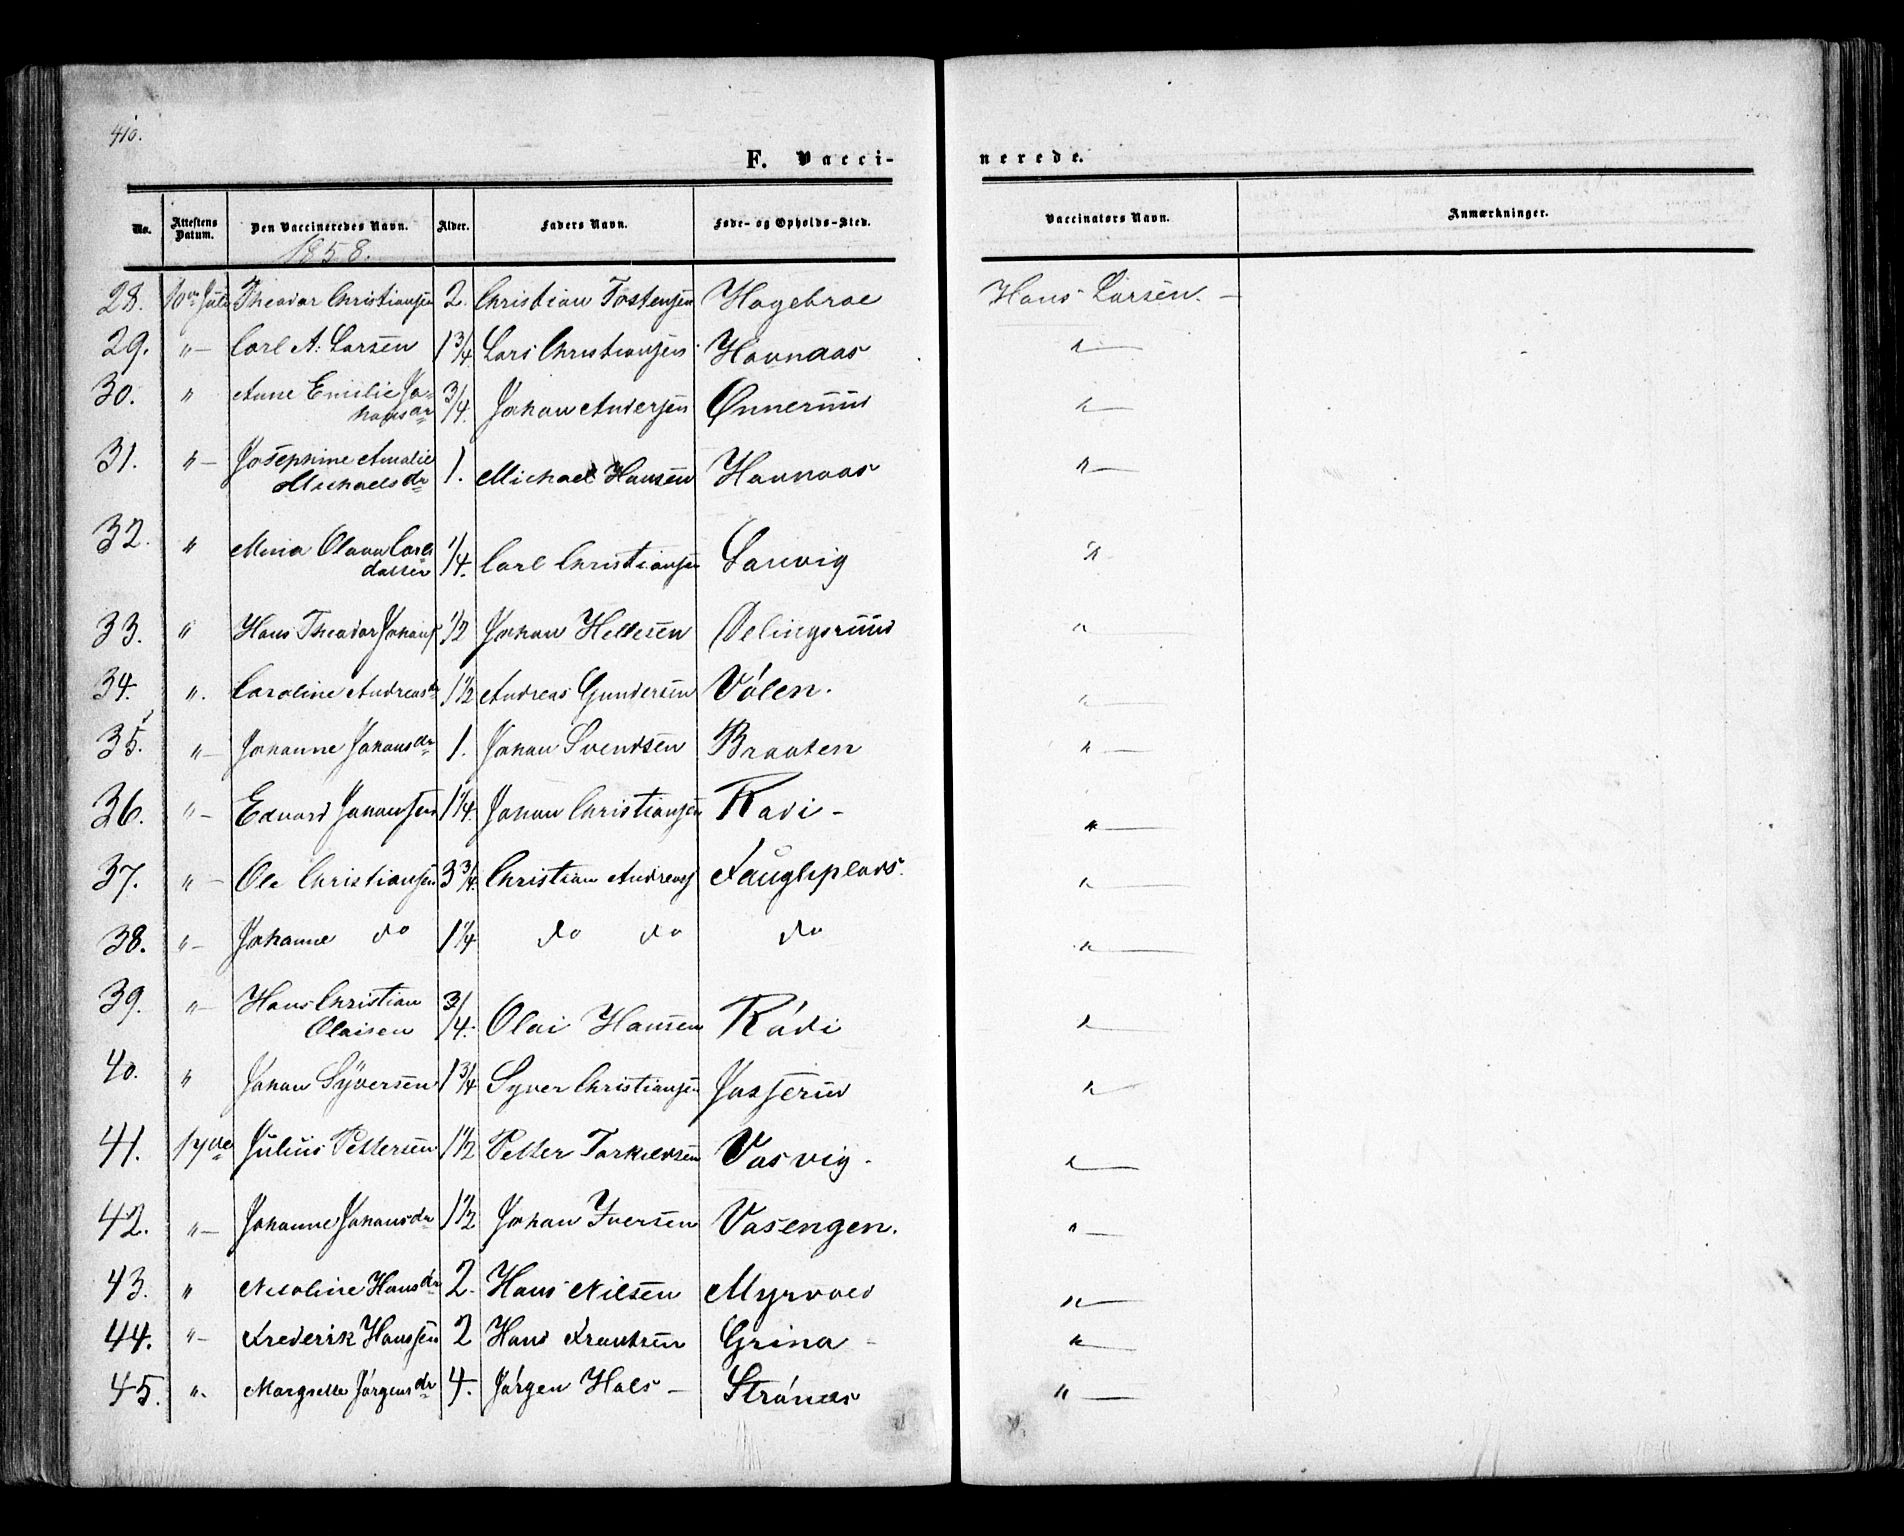 410.
F. Vacci-
nerede.
No. Attestens Datum. Den Vaccineredes Navn. Alder. Faders Navn. Føde- og Opholds-Sted. Vaccinators Navn. Anmærkninger.
1858.
28. 10de Juli Theodor Christiansen 2. Christian Tostensen Hagebroe Hans Larsen. —
29. "— Carl A. Larsen 1 3/4 Lars Christiansen Havnaas "—
30. " Anne Emilie Jo-
hansdr 3/4. Johan Andersen Ønneruud "—
31. "— Josephine Amalie
Michaelsdr 1. Michael Hansen Havnaas "—
32. " Mina Olava Carls
datter 1/4. Carl Christiansen Sarvig "
33. " Hans Theodor Johans 1/2 Johan Hellesen Delingsruud "—
34. ". Caroline Andreasdr 1 1/2 Andreas Gundersen Vólen. "—
35. "— Johanne Johansdr 1. Johan Svendsen Braaten "—
36. "— Edvard Johansen 1 1/4. Johan Christiansen Rødi — "—
37. "— Ole Christiansen 3 3/4. Christian Andreass Faugliplads. "—
38. "— Johanne do 1 1/4 do do do "—
39. "— Hans Christian
Olaisen 3/4. Olai Hansen Ródi "—
40. " Johan Syversen 1 3/4 Syver Christiansen Jasserud "—
41. 17de Julius Pettersen 1 1/2 Petter Torkildsen Vasvig. "—
42. "— Johanne Johansdr 1 1/2 Johan Iversen Vasengen. "—
43. " Nicoline Hansdr 2. Hans Nilsen Myrvold "—
44. "— Frederik Hanssen 2 Hans Frantsen Grina — "—
45. ". Margrette Jórgensdr 4. Jórgen Hals — Strónæs "—